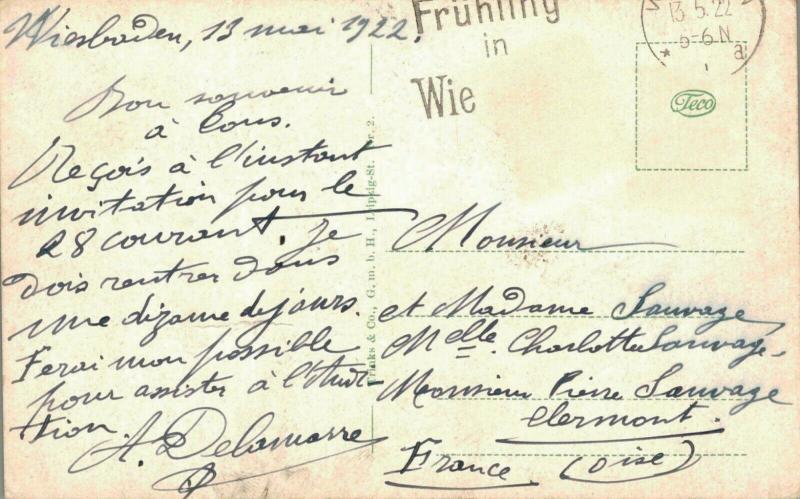 Wiesbaden, 13 mai 1922.
Bon souvenir
à tous.
Reçois à l'instant
invitation pour le
28 courant. Je
dois rentrer dans
une dizaine de jours.
Ferai mon possible
pour assister à l'
tion.
A. Delamarre
Frühling
in
Wie
13.5.22
6-6 N
* a
Teco
Franks & Co., G. m. b. H., Leipzig-St. 2.
Monsieur
et Madame Sauvage
Melle Charlotte Sauvage.
Monsieur Pierre Sauvage
Clermont.
France (Oise)